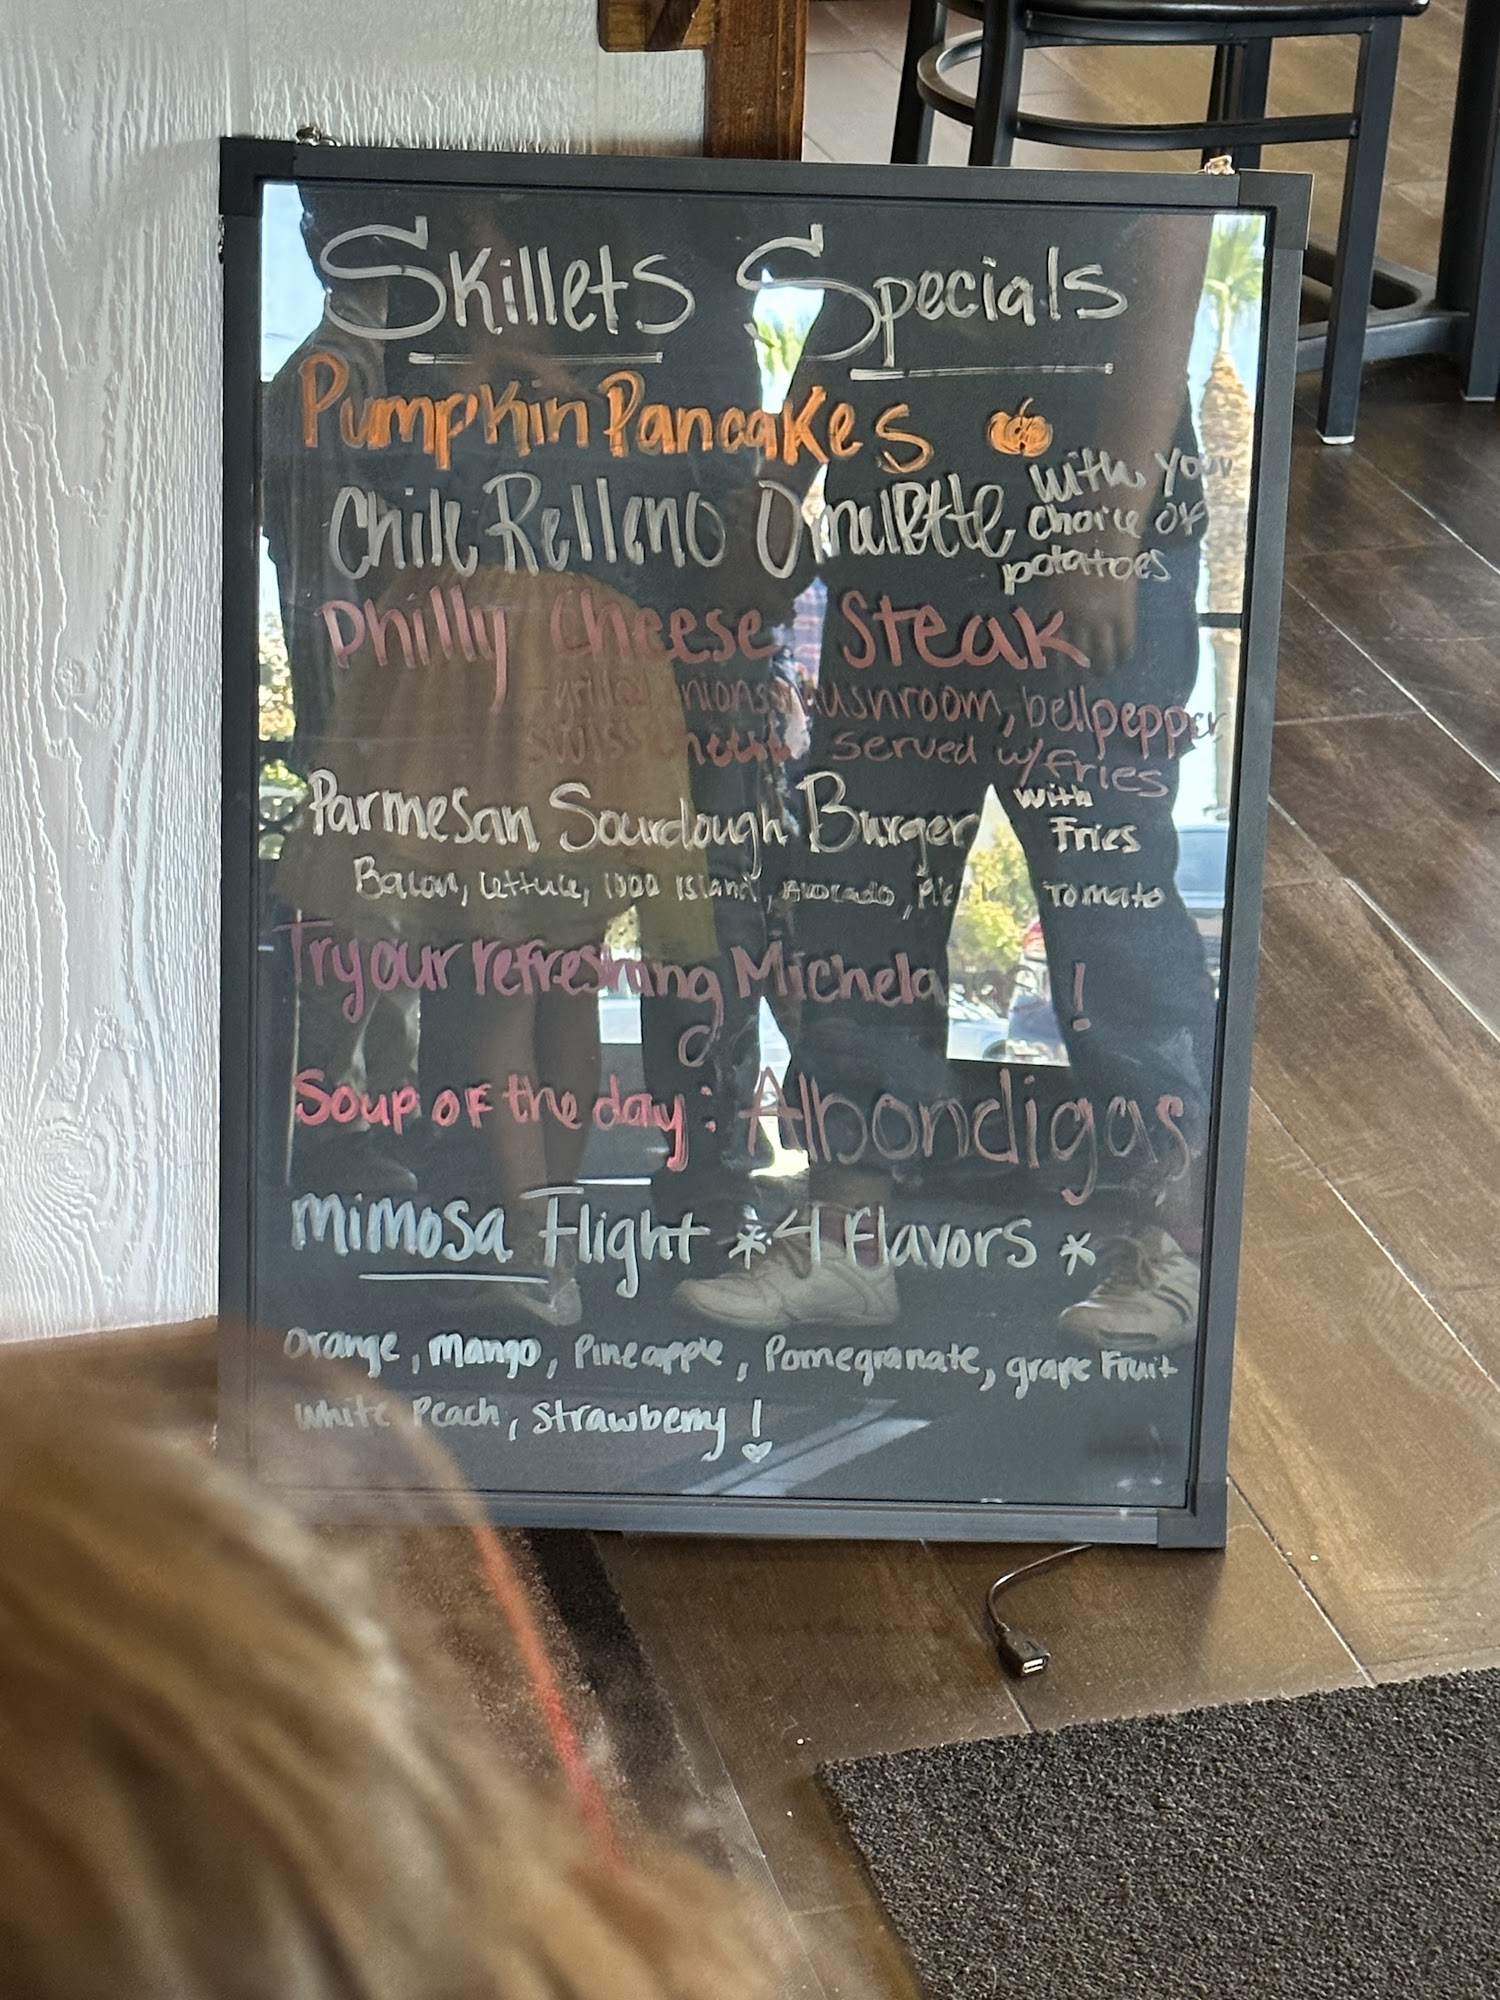 Skillets Specials
Pumpkin Pancakes
Chile Relleno Omelette with your choice of potatoes
Philly Cheese Steak
grilled onions, mushroom, bellpepper
swiss cheese served w/ fries
Parmesan Sourdough Burger with Fries
Bacon, Lettuce, 1000 Island, Avocado, Tomato
Try our refreshing !
Soup of the day: Albondigas
mimosa Flight *4 Flavors *
orange, mango, Pineapple, Pomegranate, grape Fruit
white Peach, Strawberry!